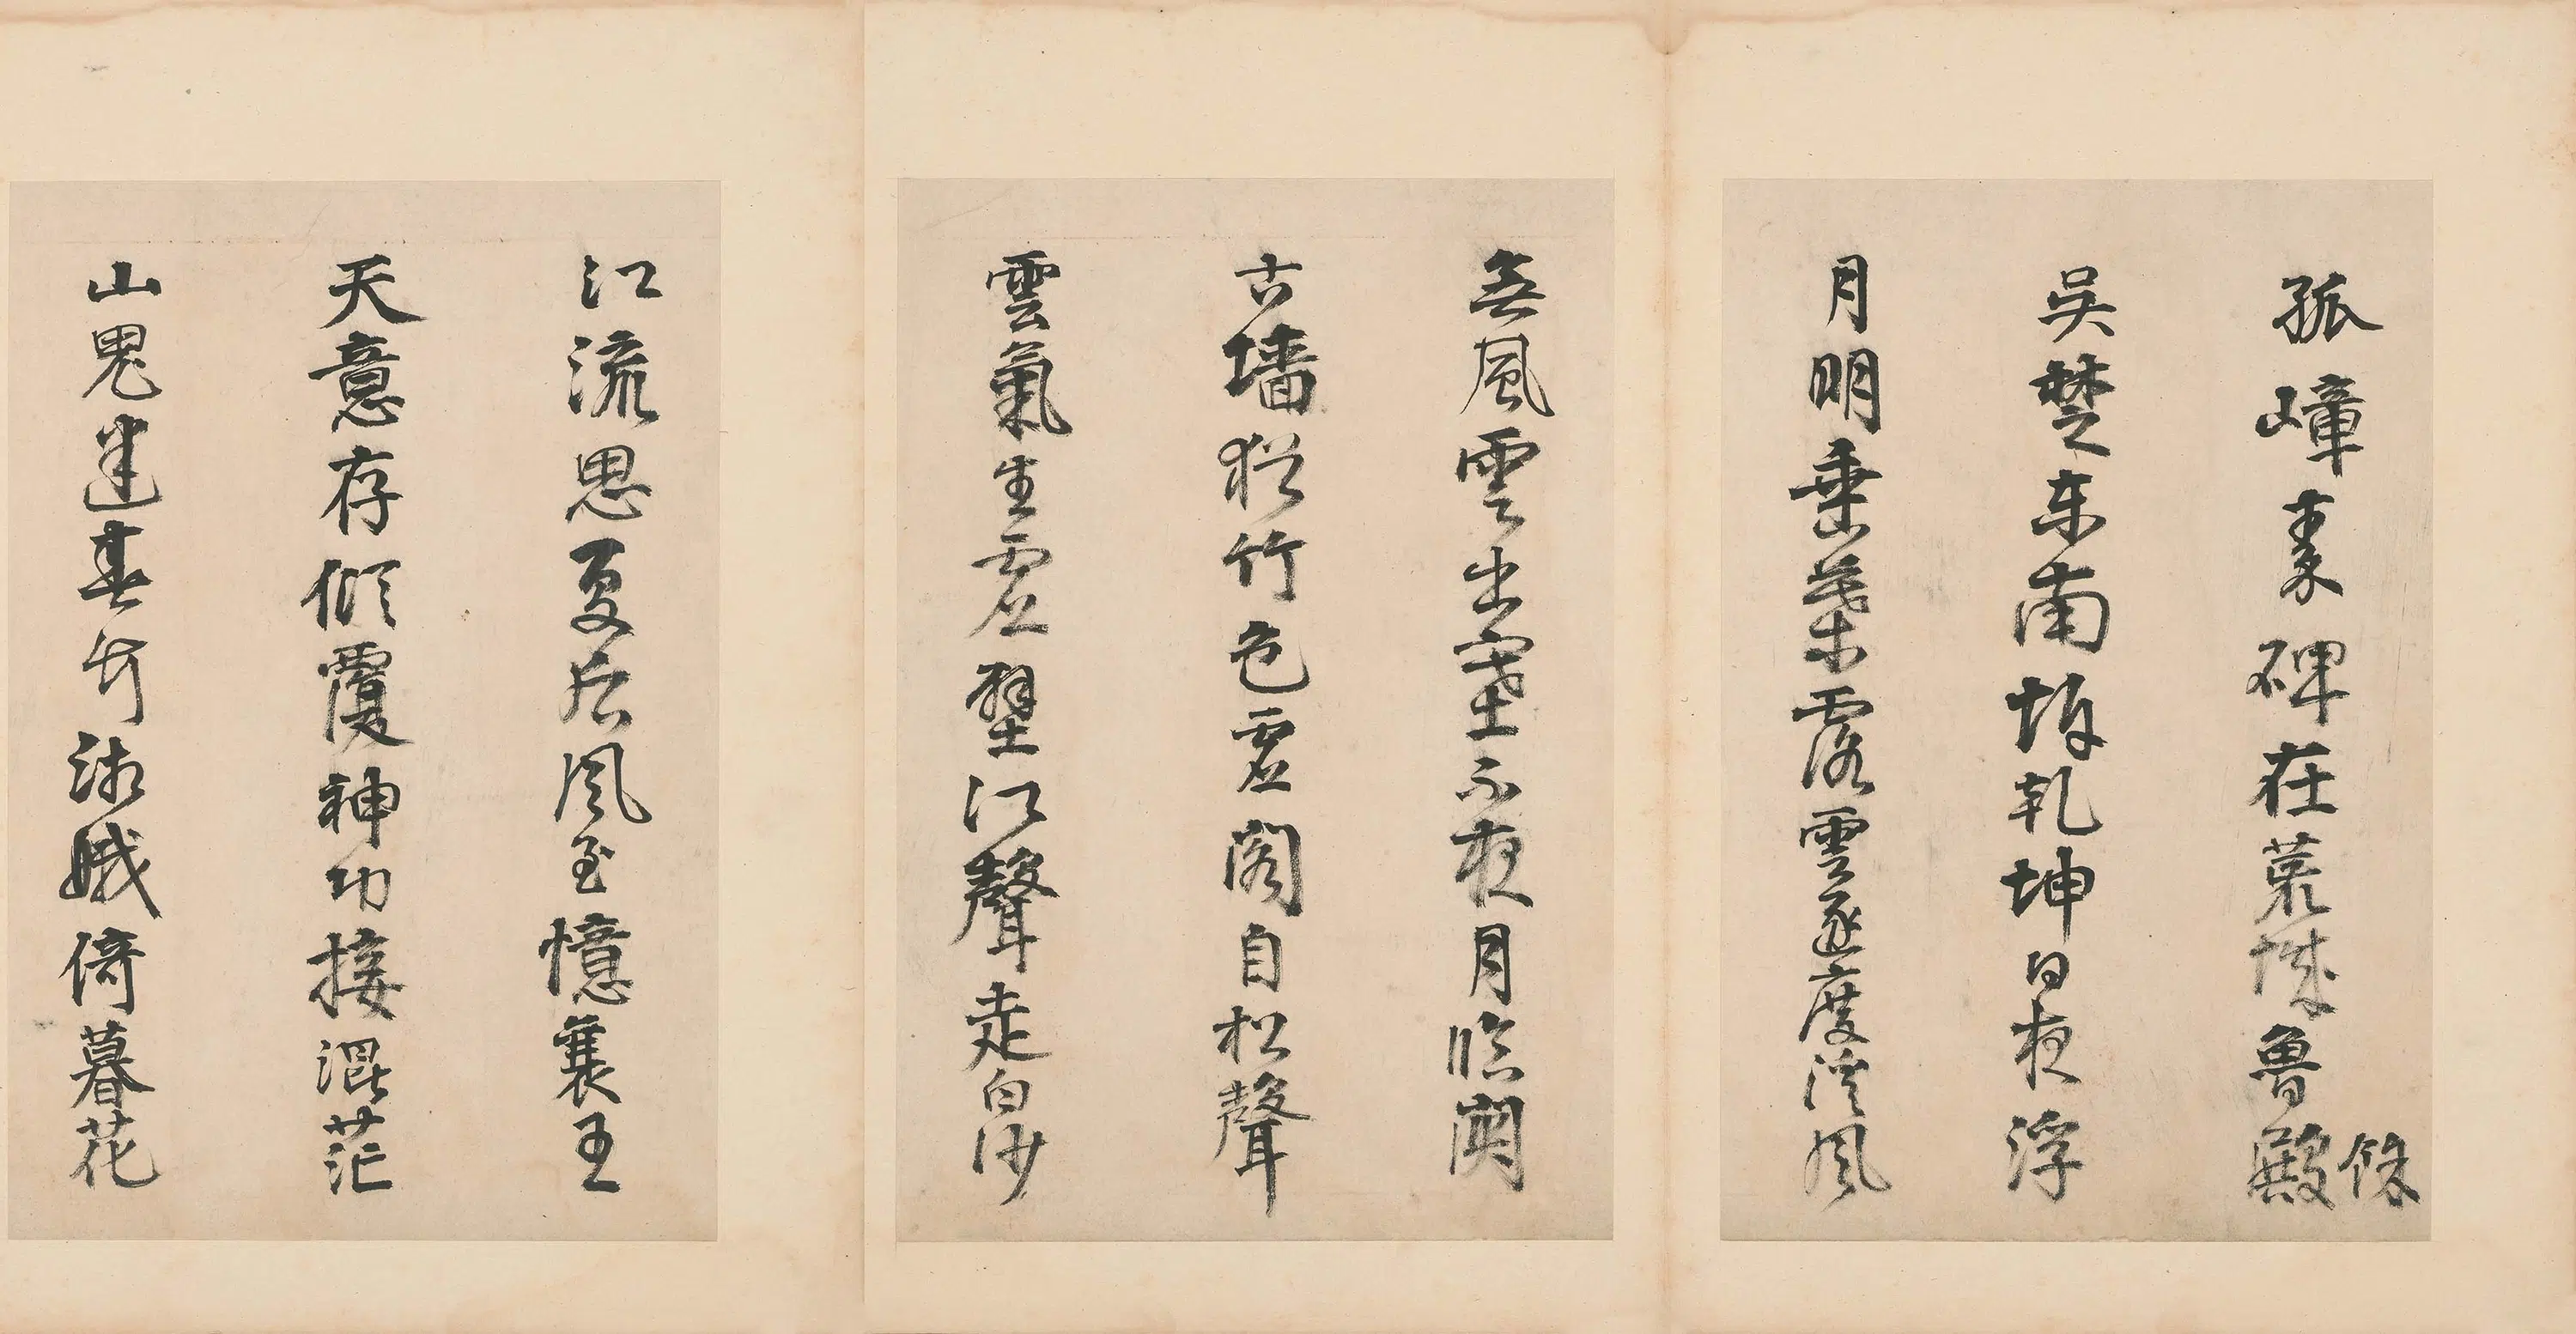 孤嶂秦碑在荒城魯殿餘
吳楚東南坼乾坤日夜浮
月明垂葉露雲逐度溪風
無風雲出塞不夜月臨關
古墻猶竹色虛閣自松聲
雲氣生虛壁江聲走白沙
江流思夏后風至憶襄王
天意存傾覆神功接混茫
山鬼迷春竹湘娥倚暮花